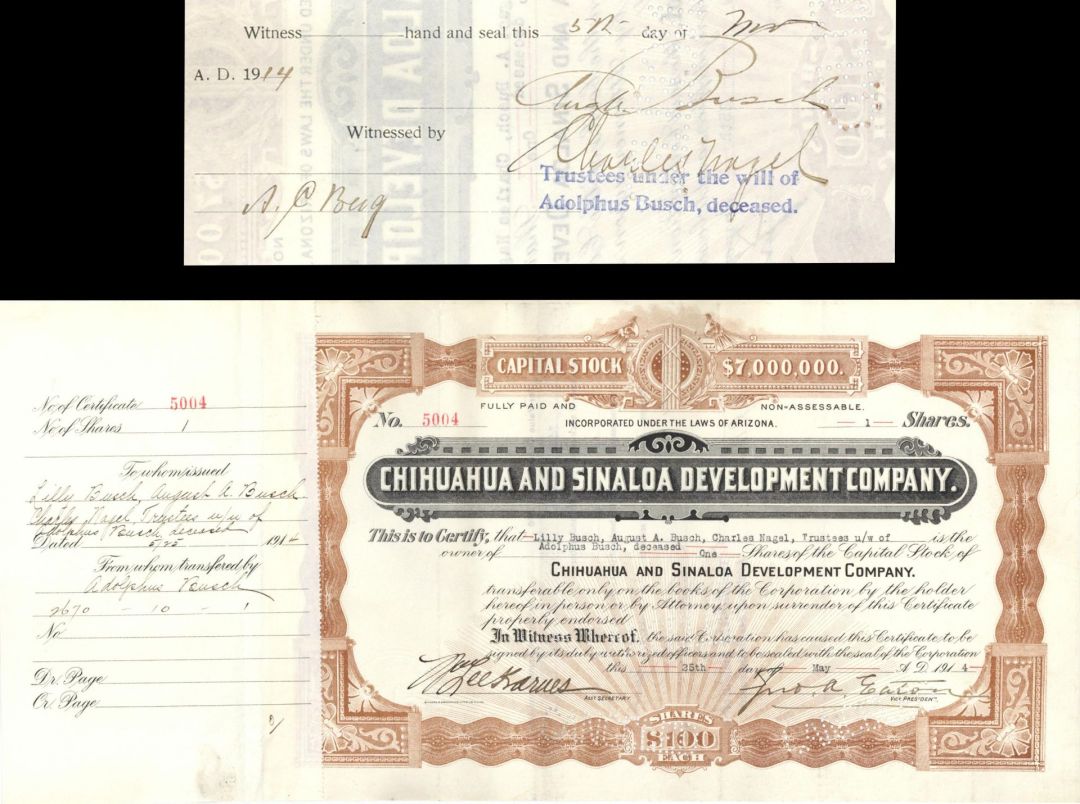 Witness hand and seal this 5th day of Nov
A. D. 1914
Aug A. Busch
Witnessed by
Charles Nagel
Trustees under the will of
A. C. Berg
Adolphus Busch, deceased.
CAPITAL STOCK $7,000,000.
FULLY PAID AND NON-ASSESSABLE.
No. of Certificate 5004
No. 5004 INCORPORATED UNDER THE LAWS OF ARIZONA. 1 Shares.
No of Shares 1
To whom issued
Lilly Busch, August A. Busch
Charles Nagel, Trustees u/w of
Adolphus Busch deceased
Dated 5/25 1914
From whom transferred by
Adolphus Busch
2670 - 10 - 1
No
Dr. Page
Cr. Page
CHIHUAHUA AND SINALOA DEVELOPMENT COMPANY.
This is to Certify, that Lilly Busch, August A. Busch, Charles Nagel, Trustees u/w of is the
owner of Adolphus Busch, deceased One Shares of the Capital Stock of
CHIHUAHUA AND SINALOA DEVELOPMENT COMPANY.
transferable only on the books of the Corporation by the holder
hereof in person or by Attorney upon surrender of this Certificate
properly endorsed
In Witness Whereof, the said Corporation has caused this Certificate to be
signed by its duly authorized officers and to be sealed with the seal of the Corporation
this 25th day of May A.D. 1914
Lee Karnes
ASST SECRETARY
Jno. A. Eaton
VICE PRESIDENT
SHARES
$100
EACH